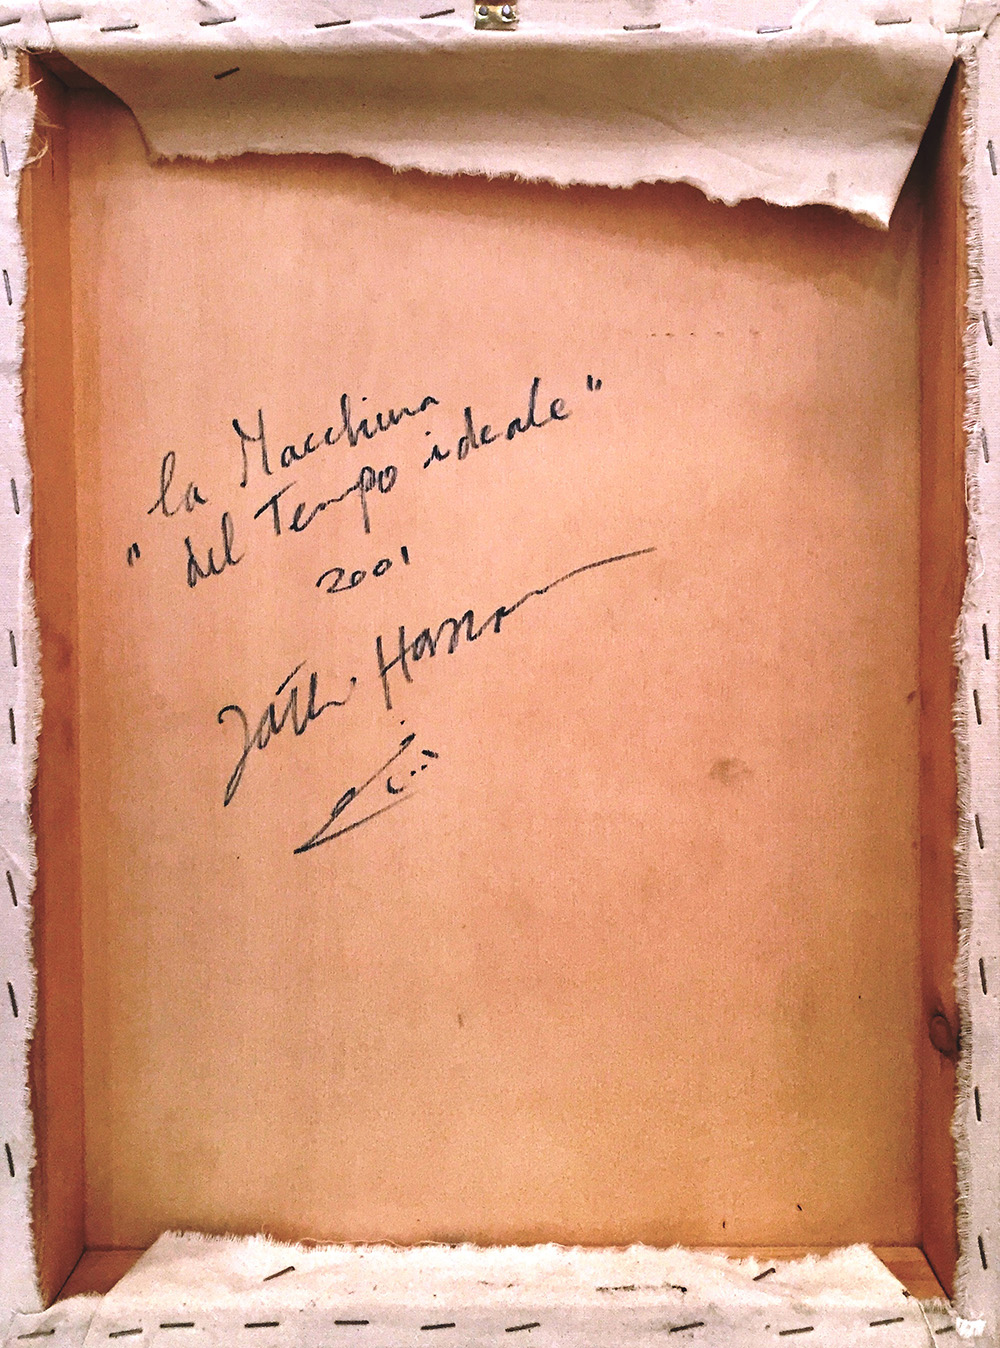 la Macchina
" del Tempo ideale "
2001
Fathi Hassan